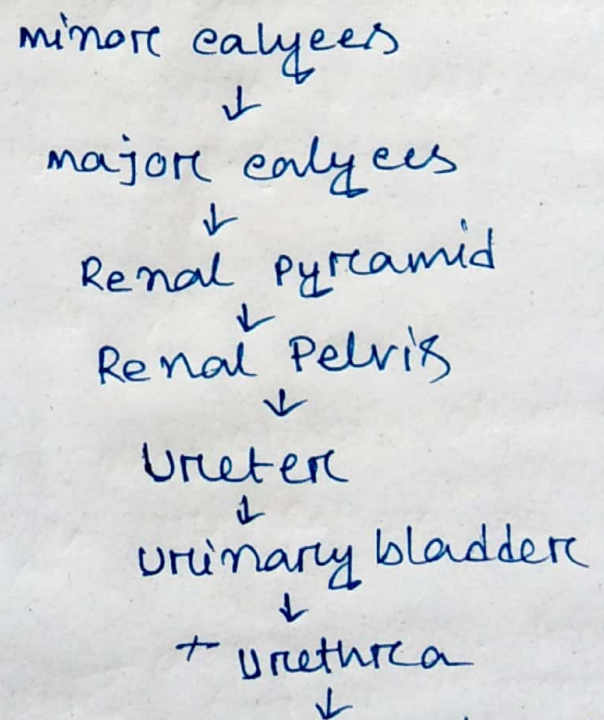 minor calyces
↓
major calyces
↓
Renal Pyramid
↓
Renal Pelvis
↓
Ureter
↓
urinary bladder
↓
+ urethra
↓